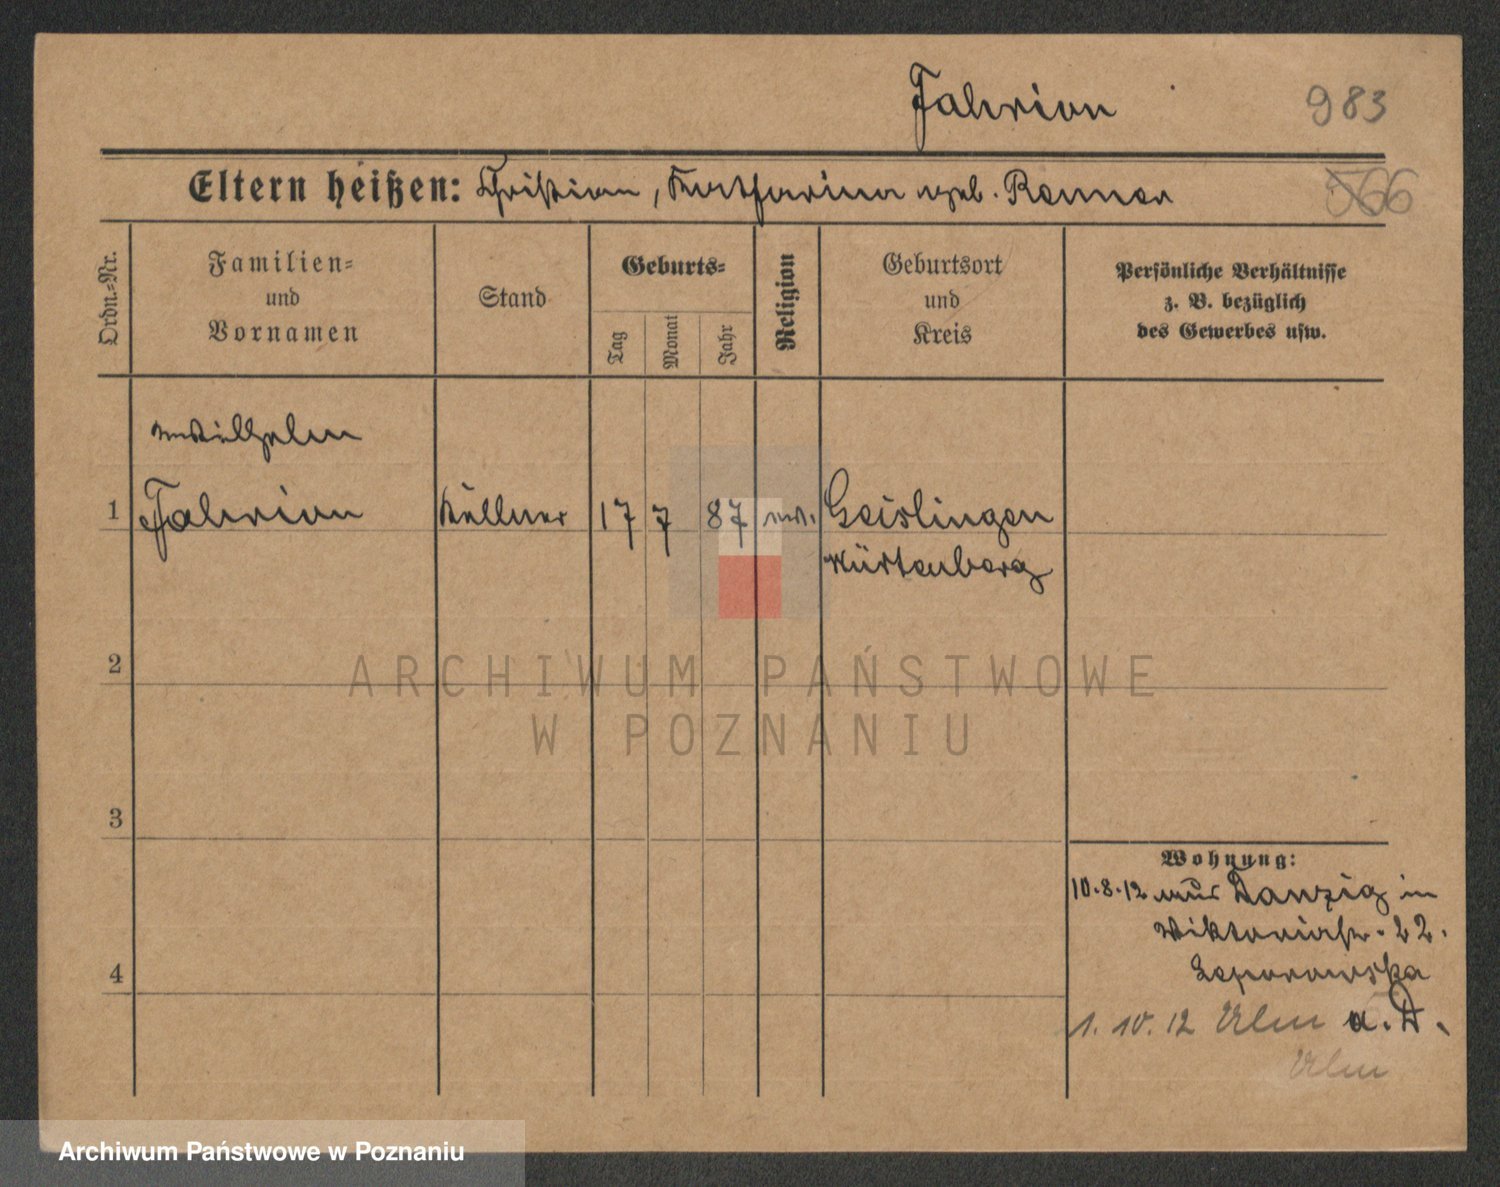 Fahrion
983
Eltern heißen: Christian, Katharina geb. Renner
566
Ordn.-Nr.
Familien-
und
Vornamen
Stand
Geburts-
Tag
Monat
Jahr
Religion
Geburtsort
und
Kreis
Persönliche Verhältnisse
z. B. bezüglich
des Gewerbes usw.
Wilhelm
1 Fahrion Kellner 17 7 87 ev. Geislingen
Würtenberg
2
ARCHIWUM PAŃSTWOWE
W POZNANIU
3
Wohnung:
10.8.12 aus Danzig in
Viktoriastr. 22.
4
1. 10. 12 Ulm a. D.
Ulm
Archiwum Państwowe w Poznaniu